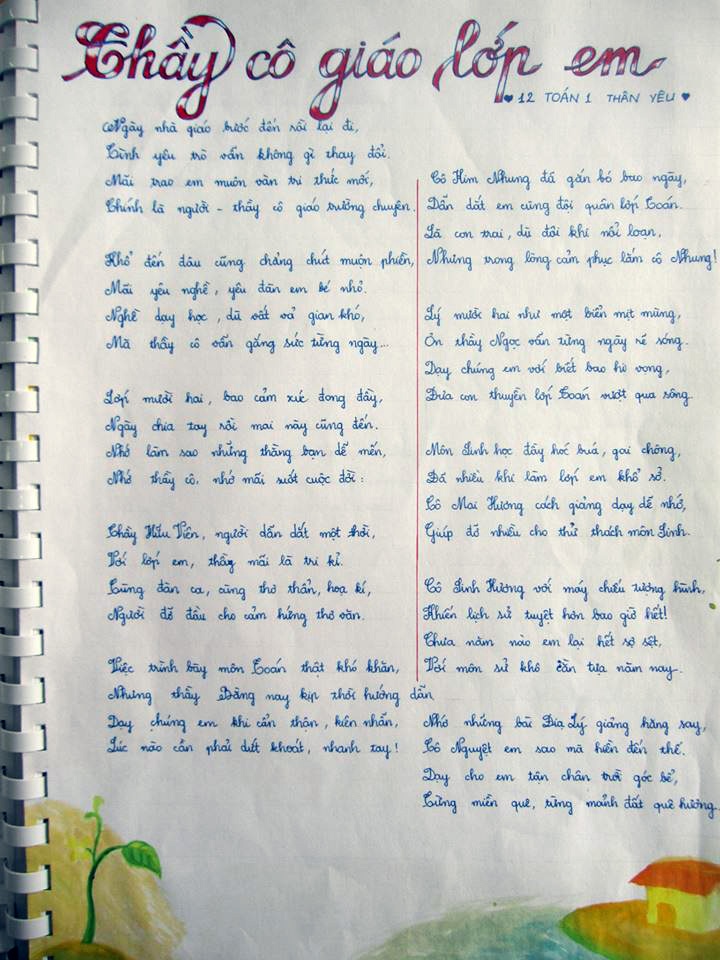 Thầy cô giáo lớp em
♥ 12 TOÁN 1 THÂN YÊU ♥
Ngày nhà giáo bước đến rồi lại đi,
Tình yêu trò vẫn không gì thay đổi.
Mãi trao em muôn vàn tri thức mới,
Chính là người - thầy cô giáo trường chuyên.
Khổ đến đâu cũng chẳng chút muộn phiền,
Mãi yêu nghề, yêu đàn em bé nhỏ.
Nghề dạy học, dù vất vả gian khó,
Mà thầy cô vẫn gắng sức từng ngày...
Lớp mười hai, bao cảm xúc đong đầy,
Ngày chia tay rồi mai này cũng đến.
Nhớ làm sao những thằng bạn dễ mến,
Nhớ thầy cô, nhớ mãi suốt cuộc đời:
Thầy Hữu Viên, người dẫn dắt một thời,
Với lớp em, thầy mãi là tri kỉ.
Cùng đàn ca, cùng thơ thẩn, hoạ kí,
Người đỡ đầu cho cảm hứng thơ văn.
Việc trình bày môn Toán thật khó khăn,
Nhưng thầy Bằng nay kịp thời hướng dẫn
Dạy chúng em khi cẩn thận, kiên nhẫn,
Lúc nào cần phải dứt khoát, nhanh tay!
Cô Kim Nhung đã gắn bó bao ngày,
Dẫn dắt em cùng đội quân lớp Toán.
Là con trai, dù đôi khi nổi loạn,
Nhưng trong lòng cảm phục lắm cô Nhung!
Lý mười hai như một biển mịt mùng,
Ơn thầy Ngọc vẫn từng ngày rẽ sóng.
Dạy chúng em với biết bao hi vọng,
Đưa con thuyền lớp Toán vượt qua sông.
Môn Sinh học đầy hóc búa, gai chông,
Đã nhiều khi làm lớp em khổ sở.
Cô Mai Hương cách giảng dạy dễ nhớ,
Giúp đỡ nhiều cho thử thách môn Sinh.
Cô Sinh Hương với máy chiếu tượng hình,
Khiến lịch sử tuyệt hơn bao giờ hết!
Chưa năm nào em lại hết sợ sệt,
Với môn sử khô cằn tựa năm nay.
Nhớ những bài Địa Lý giảng hăng say,
Cô Nguyệt em sao mà hiền đến thế.
Dạy cho em tận chân trời góc bể,
Từng miền quê, từng mảnh đất quê hương.